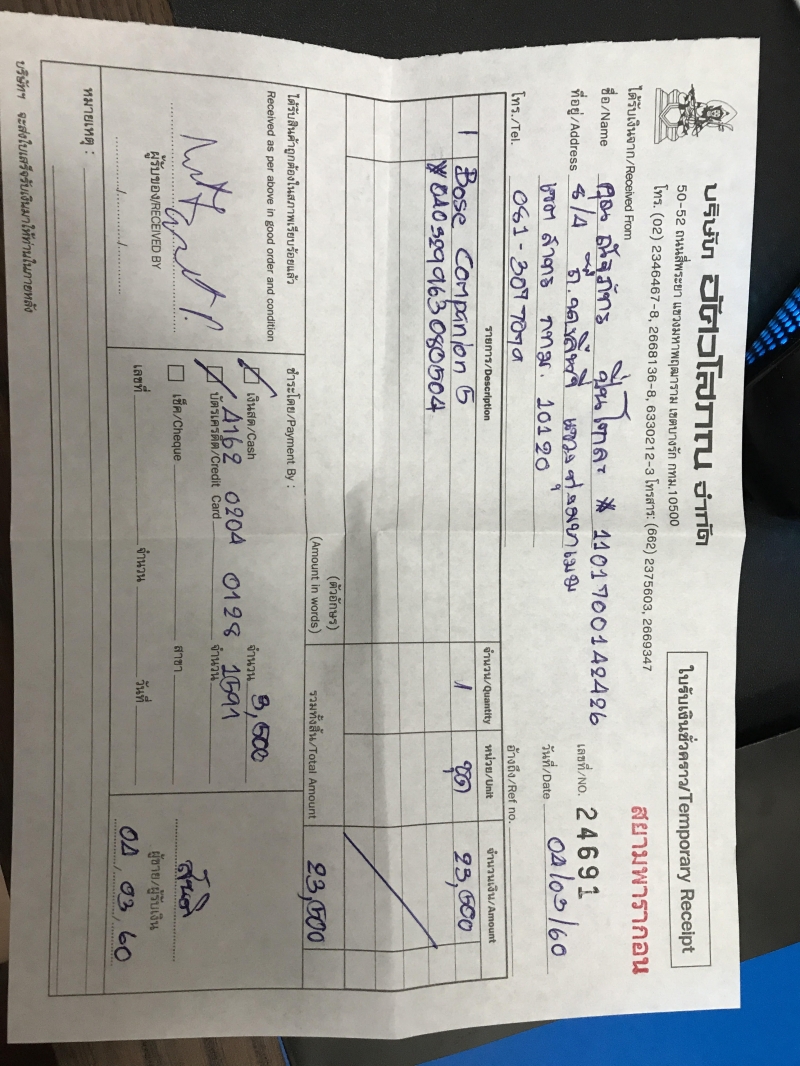 บริษัท อัศวโสภณ จำกัด
50-52 ถนนสี่พระยา แขวงมหาพฤฒาราม เขตบางรัก กทม.10500
โทร. (02) 2346467-8, 2668136-8, 6330212-3 โทรสาร: (662) 2375603, 2669347
ใบรับเงินชั่วคราว/Temporary Receipt
สยามพารากอน
ได้รับเงินจาก/Received From
เลขที่/NO. 24691
ชื่อ/Name คุณ * 1101700142426
วันที่/Date 04/03/60
ที่อยู่/Address 8/4
อ้างถึง/Ref no.
เขต สาทร กทม. 10120
โทร./Tel. 081-3097090
รายการ/Description จำนวน/Quantity หน่วย/Unit จำนวนเงิน/Amount
1 Bose Companion 5 1 ชุด 23,500
*040329963080504
(ตัวอักษร)
(Amount in words) รวมทั้งสิ้น/Total Amount 23,500
ได้รับสินค้าถูกต้องในสภาพเรียบร้อยแล้ว
Received as per above in good order and condition
ผู้รับของ/RECEIVED BY
ชำระโดย/Payment By :
เงินสด/Cash จำนวน 8,500
บัตรเครดิต/Credit Card 4162 0204 0128 1591 จำนวน
เช็ค/Cheque สาขา
เลขที่ จำนวน วันที่
ผู้ขาย/ผู้รับเงิน
04 / 03 / 60
หมายเหตุ :
บริษัทฯ จะส่งใบเสร็จรับเงินมาให้ท่านในภายหลัง